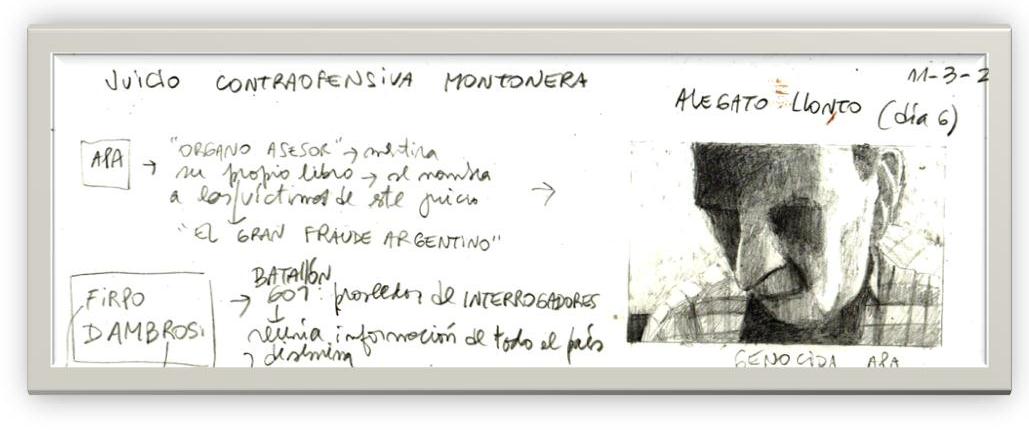 JUICIO CONTRAOFENSIVA MONTONERA
11-3-2
ALEGATO LLONTO (día 6)
APA → "ORGANO ASESOR" → mentira
su propio libro → el nombra
a las víctimas de este juicio
"EL GRAN FRAUDE ARGENTINO"
FIRPO
DAMBROSI
→ BATALLÓN
601: proveedor de INTERROGADORES
reunía información de todo el país
disemina
GENOCIDA APA